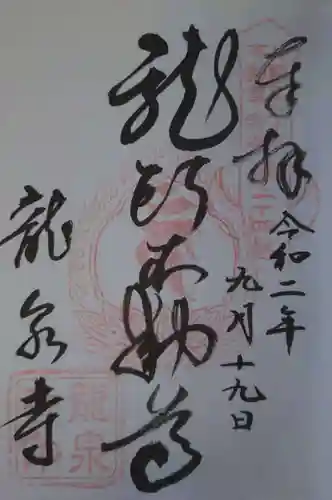 奉拝
令和二年
九月十九日
龍不動尊
龍泉寺
龍泉